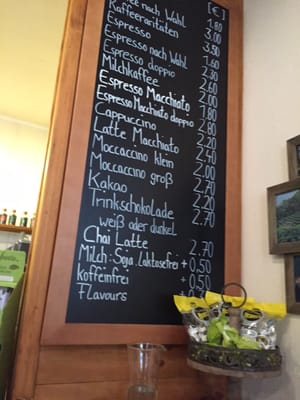 nach Wahl 1.80
Kaffeeraritäten 3.00
3.50
Espresso 1.60
Espresso nach Wahl
Espresso doppio 2.30
Milchkaffee 2.60
Espresso Macchiato 1.80
Espresso Macchiato doppio 2.80
Cappuccino 2.20
Latte Macchiato 2.40
Moccaccino klein 2.00
Moccaccino groß 2.70
Kakao 2.20
Trinkschokolade 2.70
weiß oder dunkel
Chai Latte 2.70
Milch: Soja, Laktosefrei + 0,50
Koffeinfrei + 0,50
Flavours